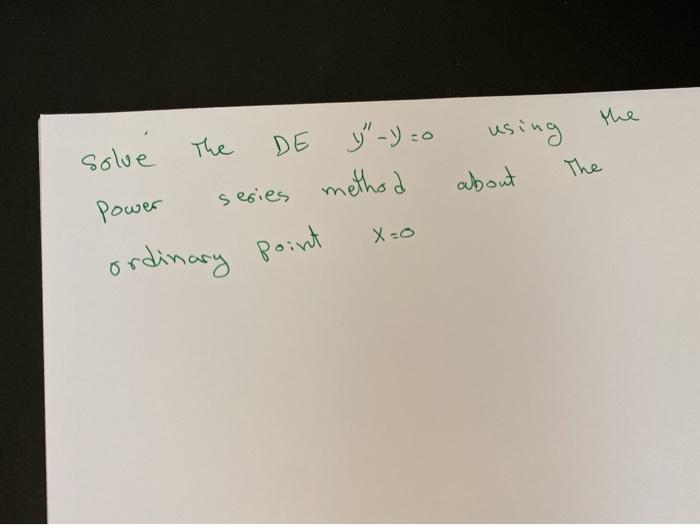 Solve The DE y"-y=0 using the
Power series method about The
ordinary point x=0